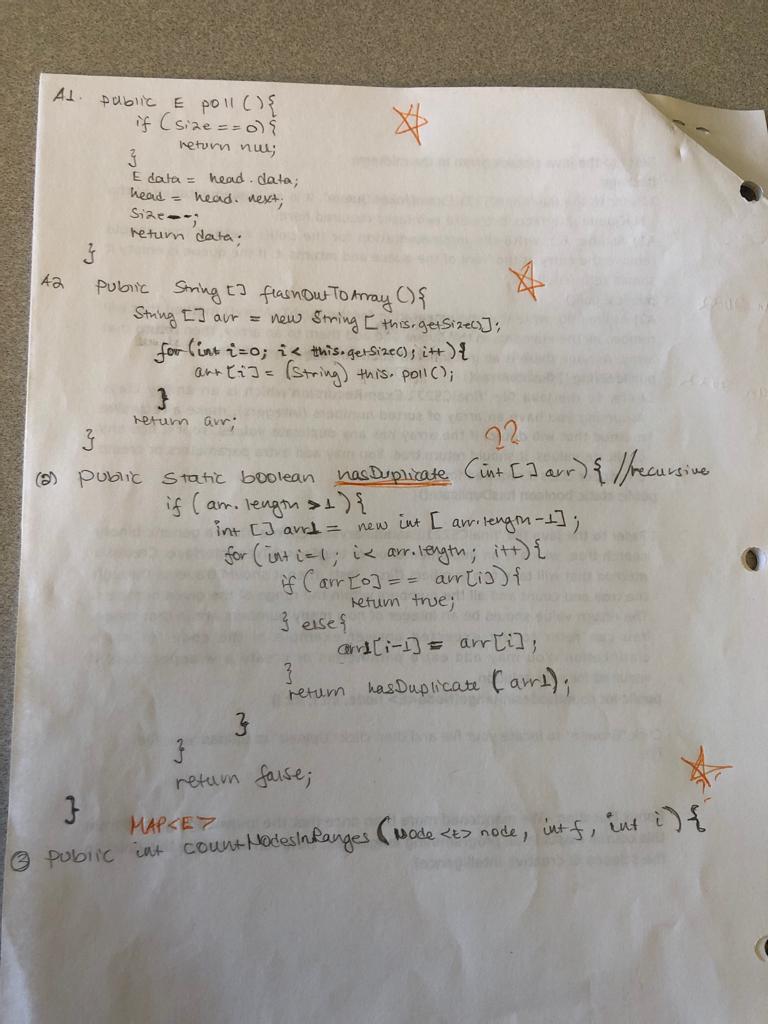 A1. public E poll(){
if (size == 0){
return null;
}
E data = head.data;
head = head.next;
size--;
return data;
}
A2 public String [] flashOutToArray(){
String [] arr = new String [this.getSize()];
for(int i=0; i< this.getSize(); i++){
arr[i] = (String) this.poll();
}
return arr;
}
??
(2) public static boolean hasDuplicate (int [] arr) { //recursive
if (arr.length >1){
int [] arr1 = new int [arr.length-1];
for(int i=1; i< arr.length; i++){
if (arr[0] == arr[i]){
return true;
} else{
arr1[i-1] = arr[i];
}
return hasDuplicate (arr1);
}
}
return false;
}
MAP<E>
③ public int countNodesInRanges (Node <E> node, int f, int i) {